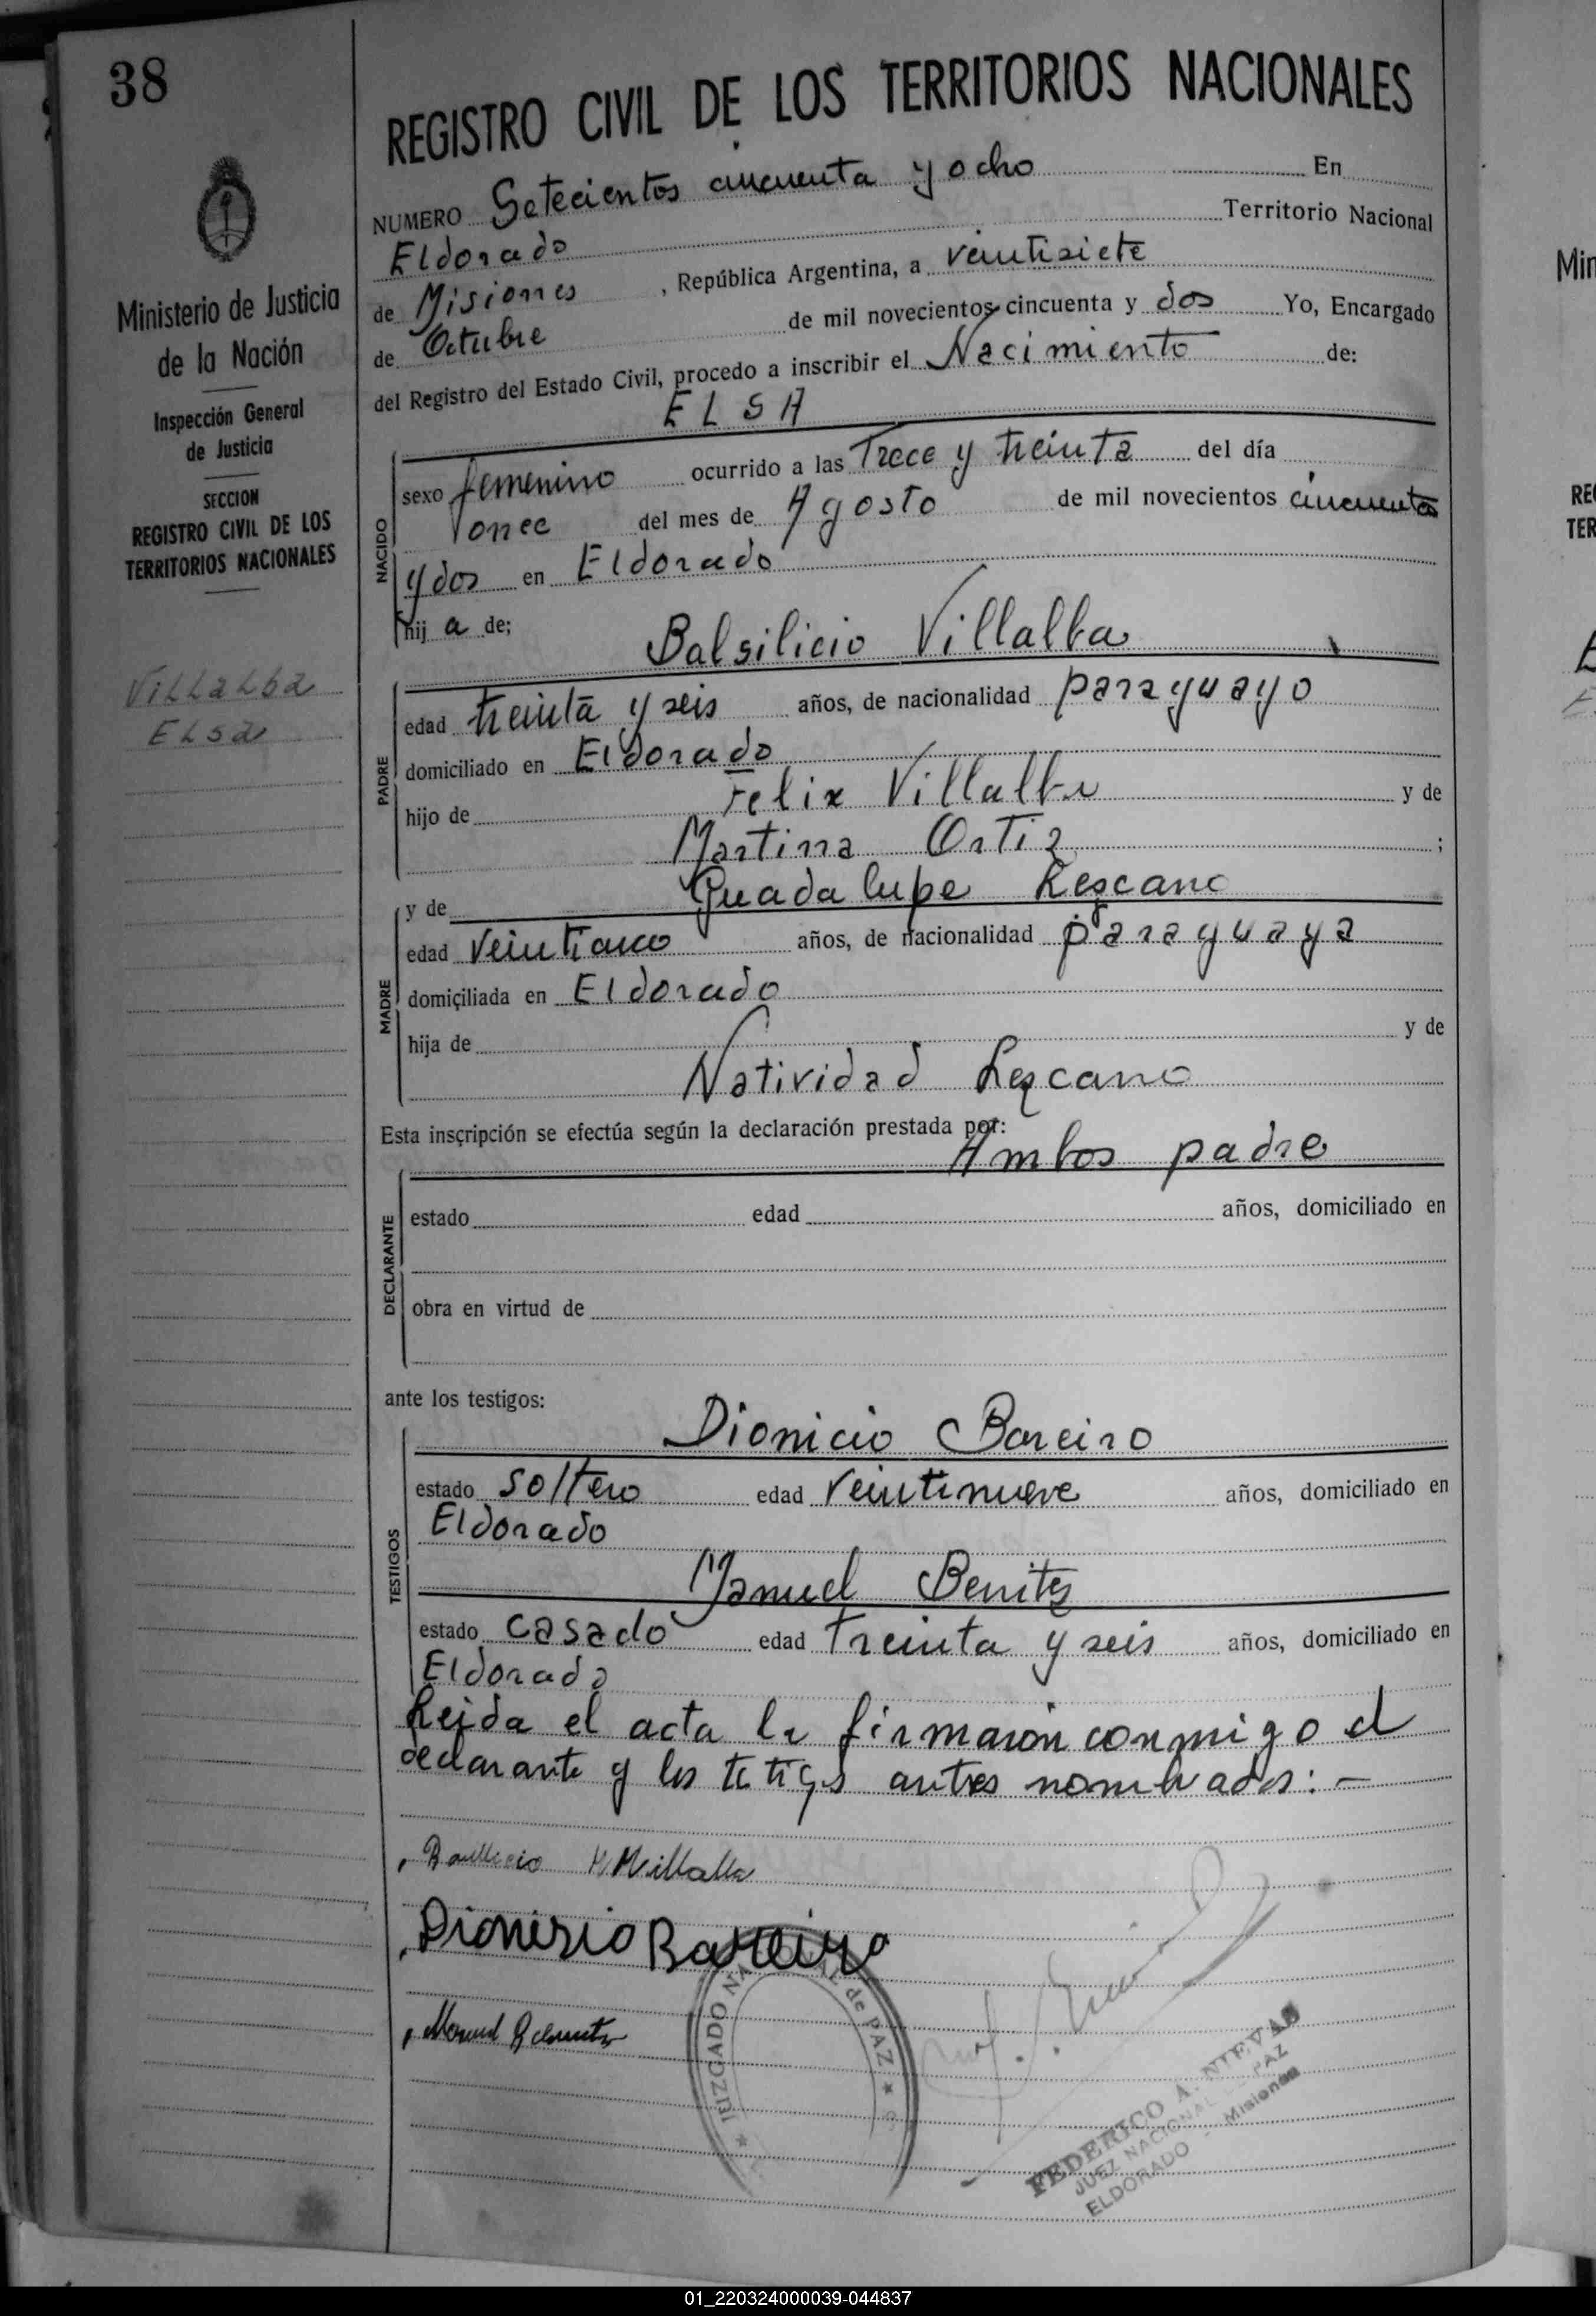 38
REGISTRO CIVIL DE LOS TERRITORIOS NACIONALES
NUMERO Setecientos cincuenta y ocho En
Eldorado Territorio Nacional
de Misiones, República Argentina, a veintisiete
de Octubre de mil novecientos cincuenta y dos Yo, Encargado
del Registro del Estado Civil, procedo a inscribir el Nacimiento de:
ELSA
Ministerio de Justicia
de la Nación
Inspección General
de Justicia
SECCION
REGISTRO CIVIL DE LOS
TERRITORIOS NACIONALES
Villalba
Elsa
NACIDO
sexo femenino ocurrido a las Trece y treinta del día
onec del mes de Agosto de mil novecientos cincuenta
y dos en Eldorado
hij a de;
Balsilicio Villalba
PADRE
edad treinta y seis años, de nacionalidad paraguayo
domiciliado en Eldorado
hijo de Felix Villalba y de
Martina Ortiz ;
y de Guadalupe Lescano
MADRE
edad veinticinco años, de nacionalidad paraguaya
domiciliada en Eldorado
hija de y de
Natividad Lezcano
Esta inscripción se efectúa según la declaración prestada por:
Ambos padre
DECLARANTE
estado edad años, domiciliado en
obra en virtud de
ante los testigos:
Dionicio Bareiro
TESTIGOS
estado soltero edad veintinueve años, domiciliado en
Eldorado
Manuel Benitez
estado casado edad treinta y seis años, domiciliado en
Eldorado
Leida el acta la firmaron conmigo el
declarante y los tetigs antes nombrados: -
Villalba
Dionisio Barreiro
Manuel
JUZGADO NA de PAZ
FEDERICO A. NIEVAS
JUEZ NACIONAL PAZ
ELDORADO - Misiones
Min
RE
TER
01_220324000039-044837